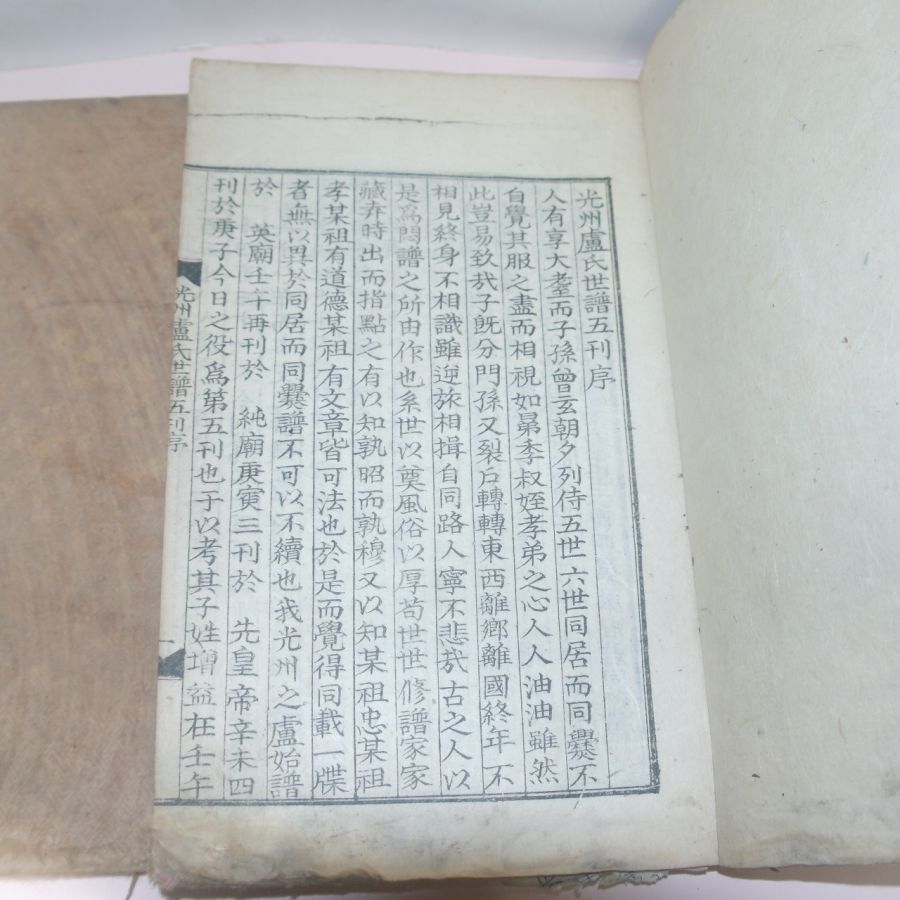 光州盧氏世譜五刊序
人有享大耋而子孫曾玄朝夕列侍五世六世同居而同爨不
自覺其服之盡而相視如昴季叔姪孝弟之心人人油油雖然
此豈易致哉子旣分門孫又裂戶轉轉東西離鄉離國終年不
相見終身不相識雖逆旅相揖自同路人寧不悲哉古之人以
是爲悶譜之所由作也系世以奠風俗以厚苟世世修譜家家
藏弆時出而指點之有以知孰昭而孰穆又以知某祖忠某祖
孝某祖有道德某祖有文章皆可法也於是而覺得同載一牒
者無以異於同居而同爨譜不可以不續也我光州之盧始譜
於 英廟壬午再刊於 純廟庚寅三刊於 先皇帝辛未四
刊於庚子今日之役爲第五刊也于以考其子姓增益在壬午
光州盧氏世譜五刊序
一